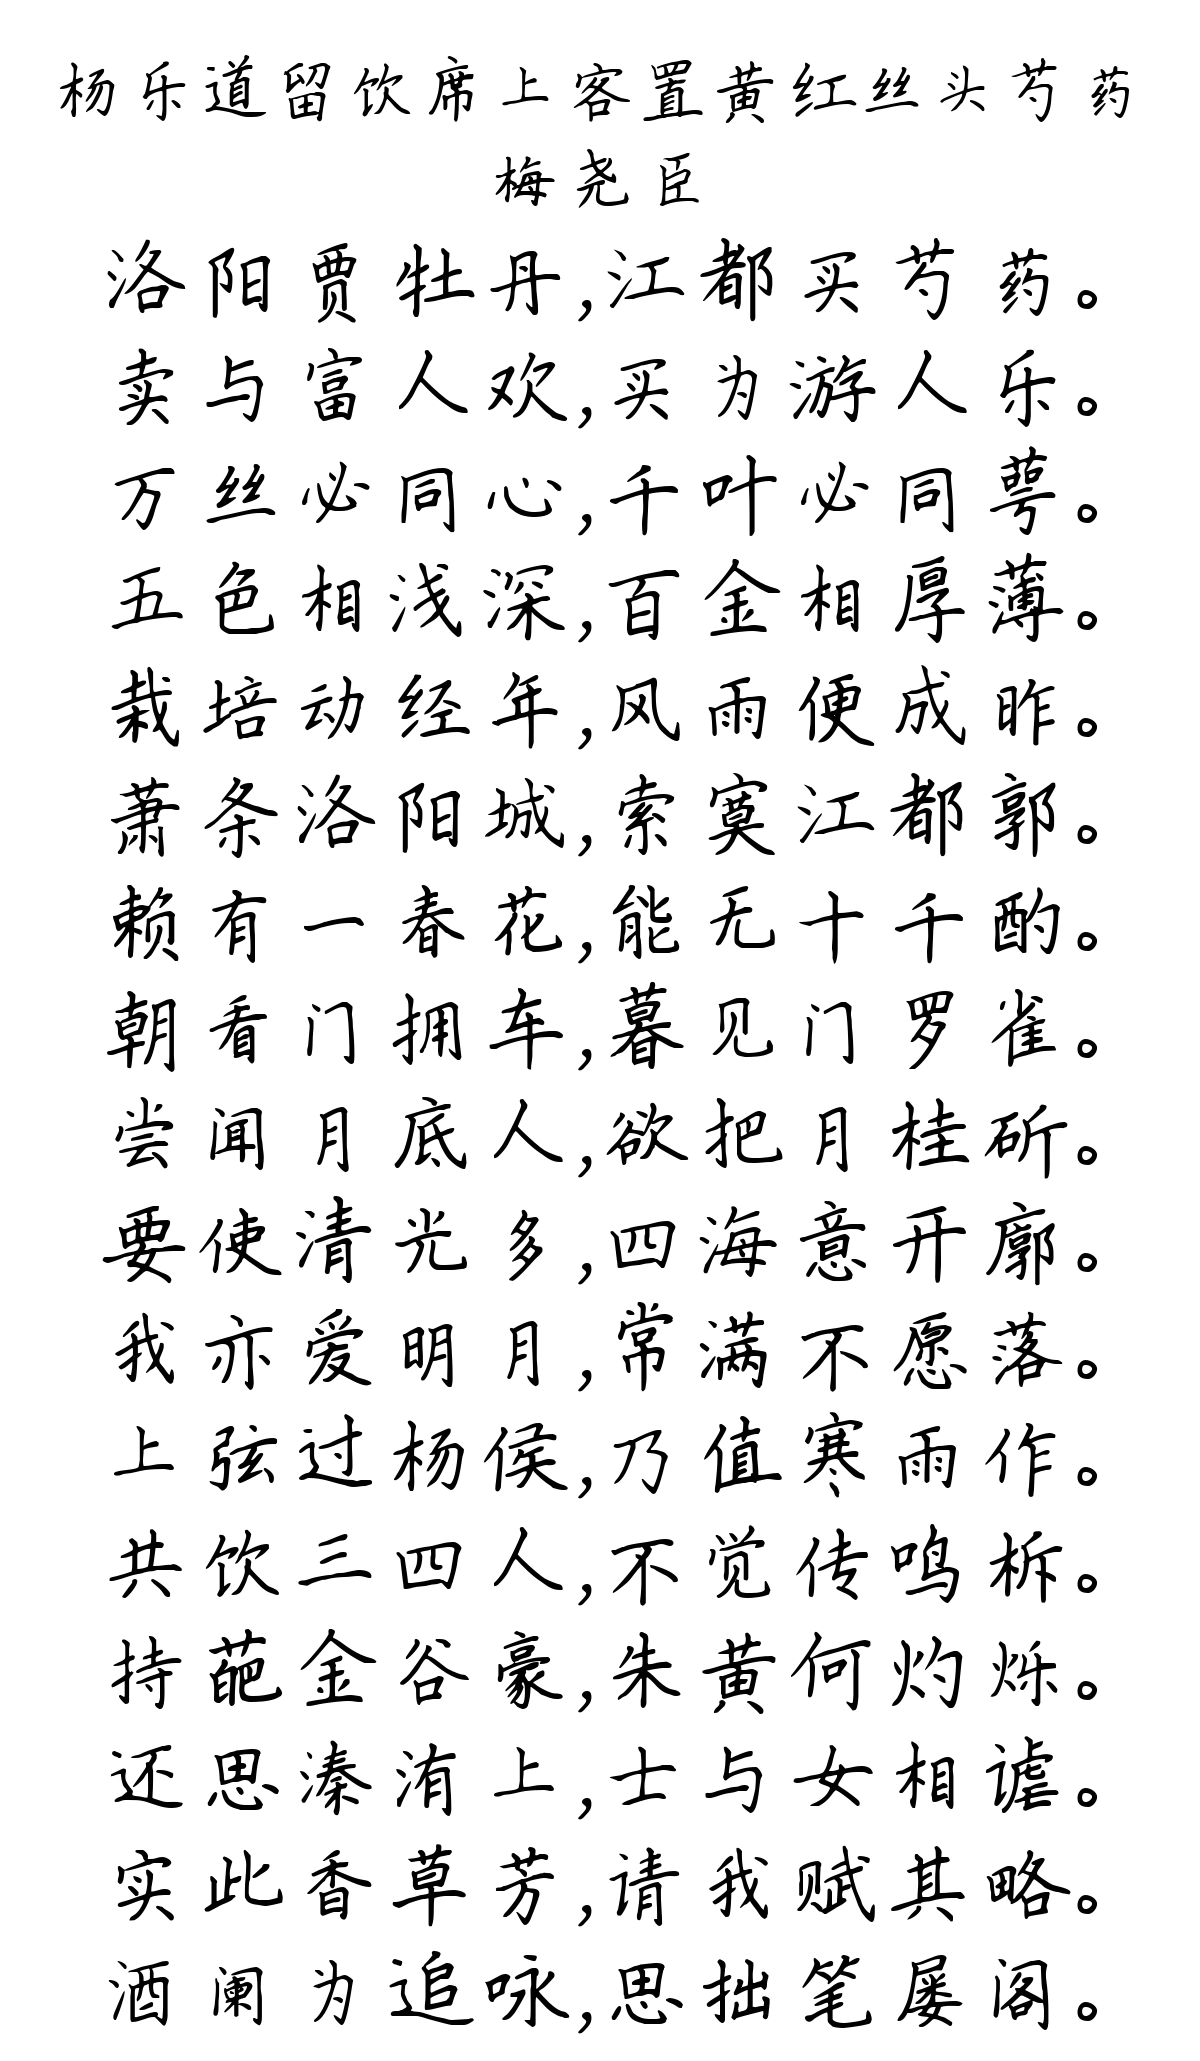 杨乐道留饮席上客置黄红丝头芍药
梅尧臣
洛阳贾牡丹,江都买芍药。
卖与富人欢,买为游人乐。
万丝必同心,千叶必同萼。
五色相浅深,百金相厚薄。
栽培动经年,风雨便成昨。
萧条洛阳城,索寞江都郭。
赖有一春花,能无十千酌。
朝看门拥车,暮见门罗雀。
尝闻月底人,欲把月桂斫。
要使清光多,四海意开廓。
我亦爱明月,常满不愿落。
上弦过杨侯,乃值寒雨作。
共饮三四人,不觉传鸣柝。
持葩金谷豪,朱黄何灼烁。
还思溱洧上,士与女相谑。
实此香草芳,请我赋其略。
酒阑为追咏,思拙笔屡阁。